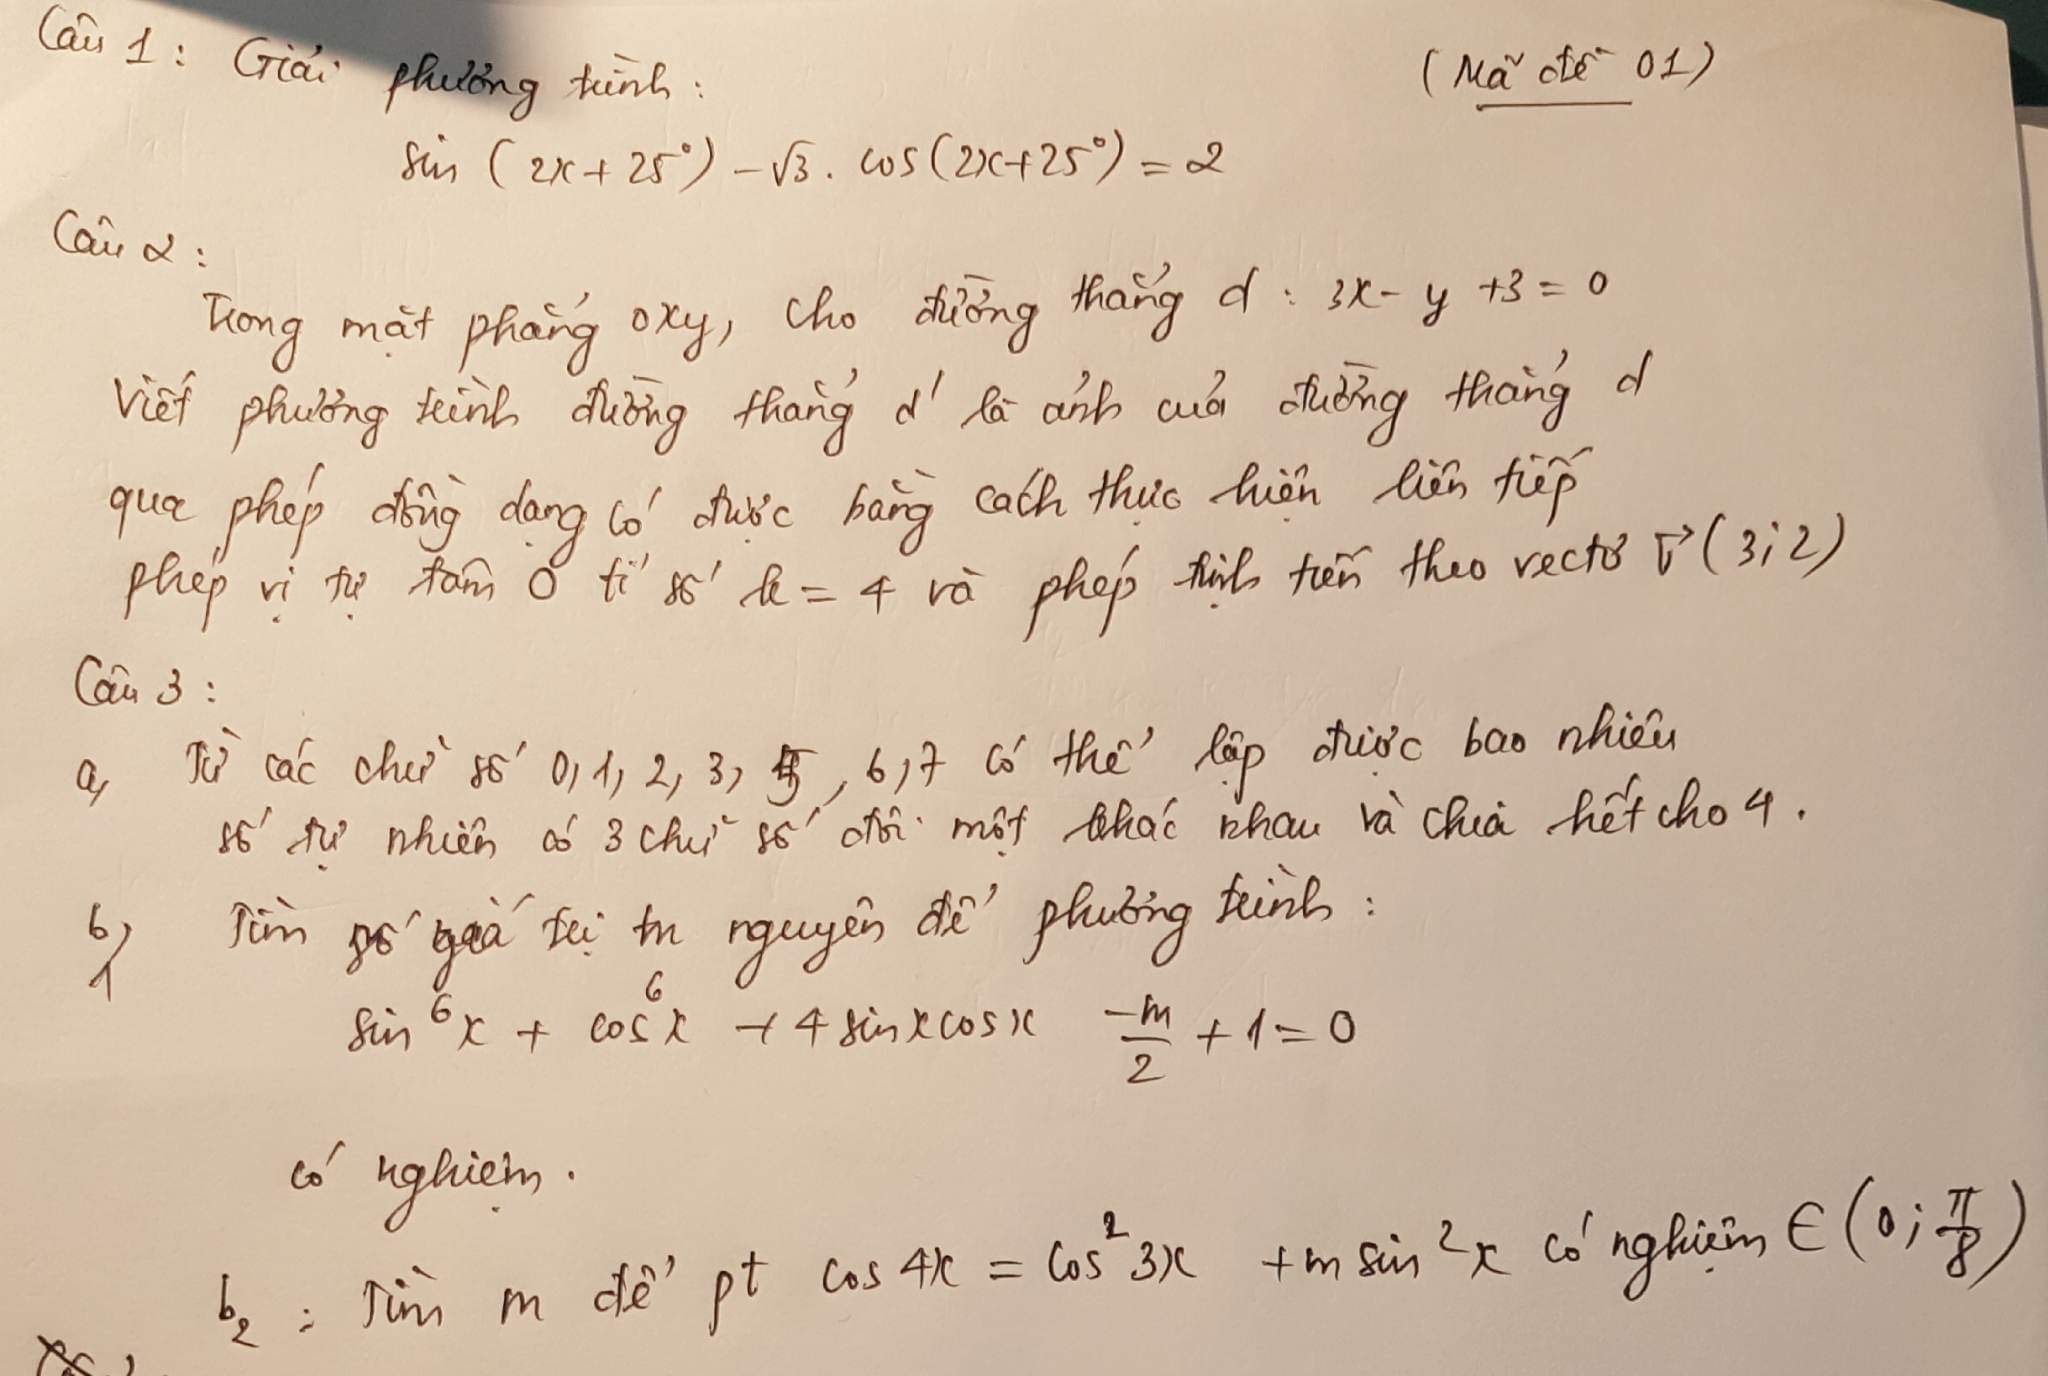 Câu 1: Giải phương trình: (Mã đề 01)
sin (2x + 25°) - √3 . cos (2x + 25°) = 2
Câu 2:
Trong mặt phẳng oxy, cho đường thẳng d : 3x - y + 3 = 0
Viết phương trình đường thẳng d' là ảnh của đường thẳng d
qua phép đồng dạng có được bằng cách thực hiện liên tiếp
phép vị tự tâm O tỉ số k = 4 và phép tịnh tiến theo vectơ v⃗ (3; 2)
Câu 3:
a, Từ các chữ số 0, 1, 2, 3, 5, 6, 7 có thể lập được bao nhiêu
số tự nhiên có 3 chữ số đôi một khác nhau và chia hết cho 4.
b,1 Tìm giá trị m nguyên để phương trình:
sin⁶x + cos⁶x + 4 sinx cosx -m/2 + 1 = 0
có nghiệm.
b₂ : Tìm m để pt cos 4x = cos²3x + m sin²x có nghiệm ∈ (0; π/8)